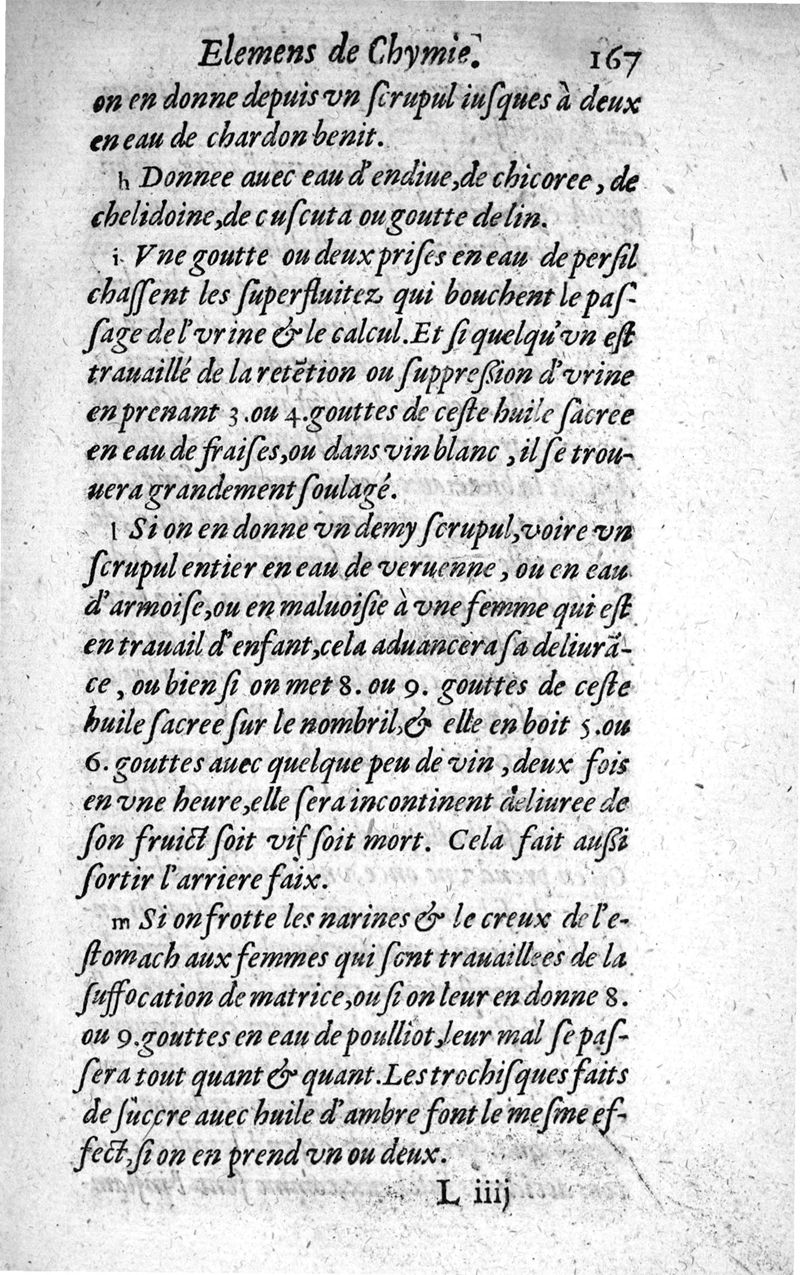 Elemens de Chymie. 167
on en donne depuis vn ſcrupul iuſques à deux
en eau de chardon benit.
h Donnee auec eau d'endiue, de chicoree, de
chelidoine, de cuſcuta ou goutte de lin.
i Vne goutte ou deux priſes en eau de perſil
chaſſent les ſuperfluitez qui bouchent le paſ-
ſage de l'vrine & le calcul. Et ſi quelqu'vn eſt
trauaillé de la retẽtion ou ſuppreßion d'vrine
en prenant 3. ou 4. gouttes de ceſte huile ſacree
en eau de fraiſes, ou dans vin blanc, il ſe trou-
uera grandement ſoulagé.
l Si on en donne vn demy ſcrupul, voire vn
ſcrupul entier en eau de veruenne, ou en eau
d'armoiſe, ou en maluoiſie à vne femme qui eſt
en trauail d'enfant, cela aduancera ſa deliurã-
ce, ou bien ſi on met 8. ou 9. gouttes de ceſte
huile ſacree ſur le nombril, & elle en boit 5. ou
6. gouttes auec quelque peu de vin, deux fois
en vne heure, elle ſera incontinent deliuree de
ſon fruict ſoit vif ſoit mort. Cela fait außi
ſortir l'arriere faix.
m Si on frotte les narines & le creux de l'e-
ſtomach aux femmes qui ſont trauaillees de la
ſuffocation de matrice, ou ſi on leur en donne 8.
ou 9. gouttes en eau de poulliot, leur mal ſe paſ-
ſera tout quant & quant. Les trochiſques faits
de ſuccre auec huile d'ambre font le meſme ef-
fect, ſi on en prend vn ou deux.
L iiij